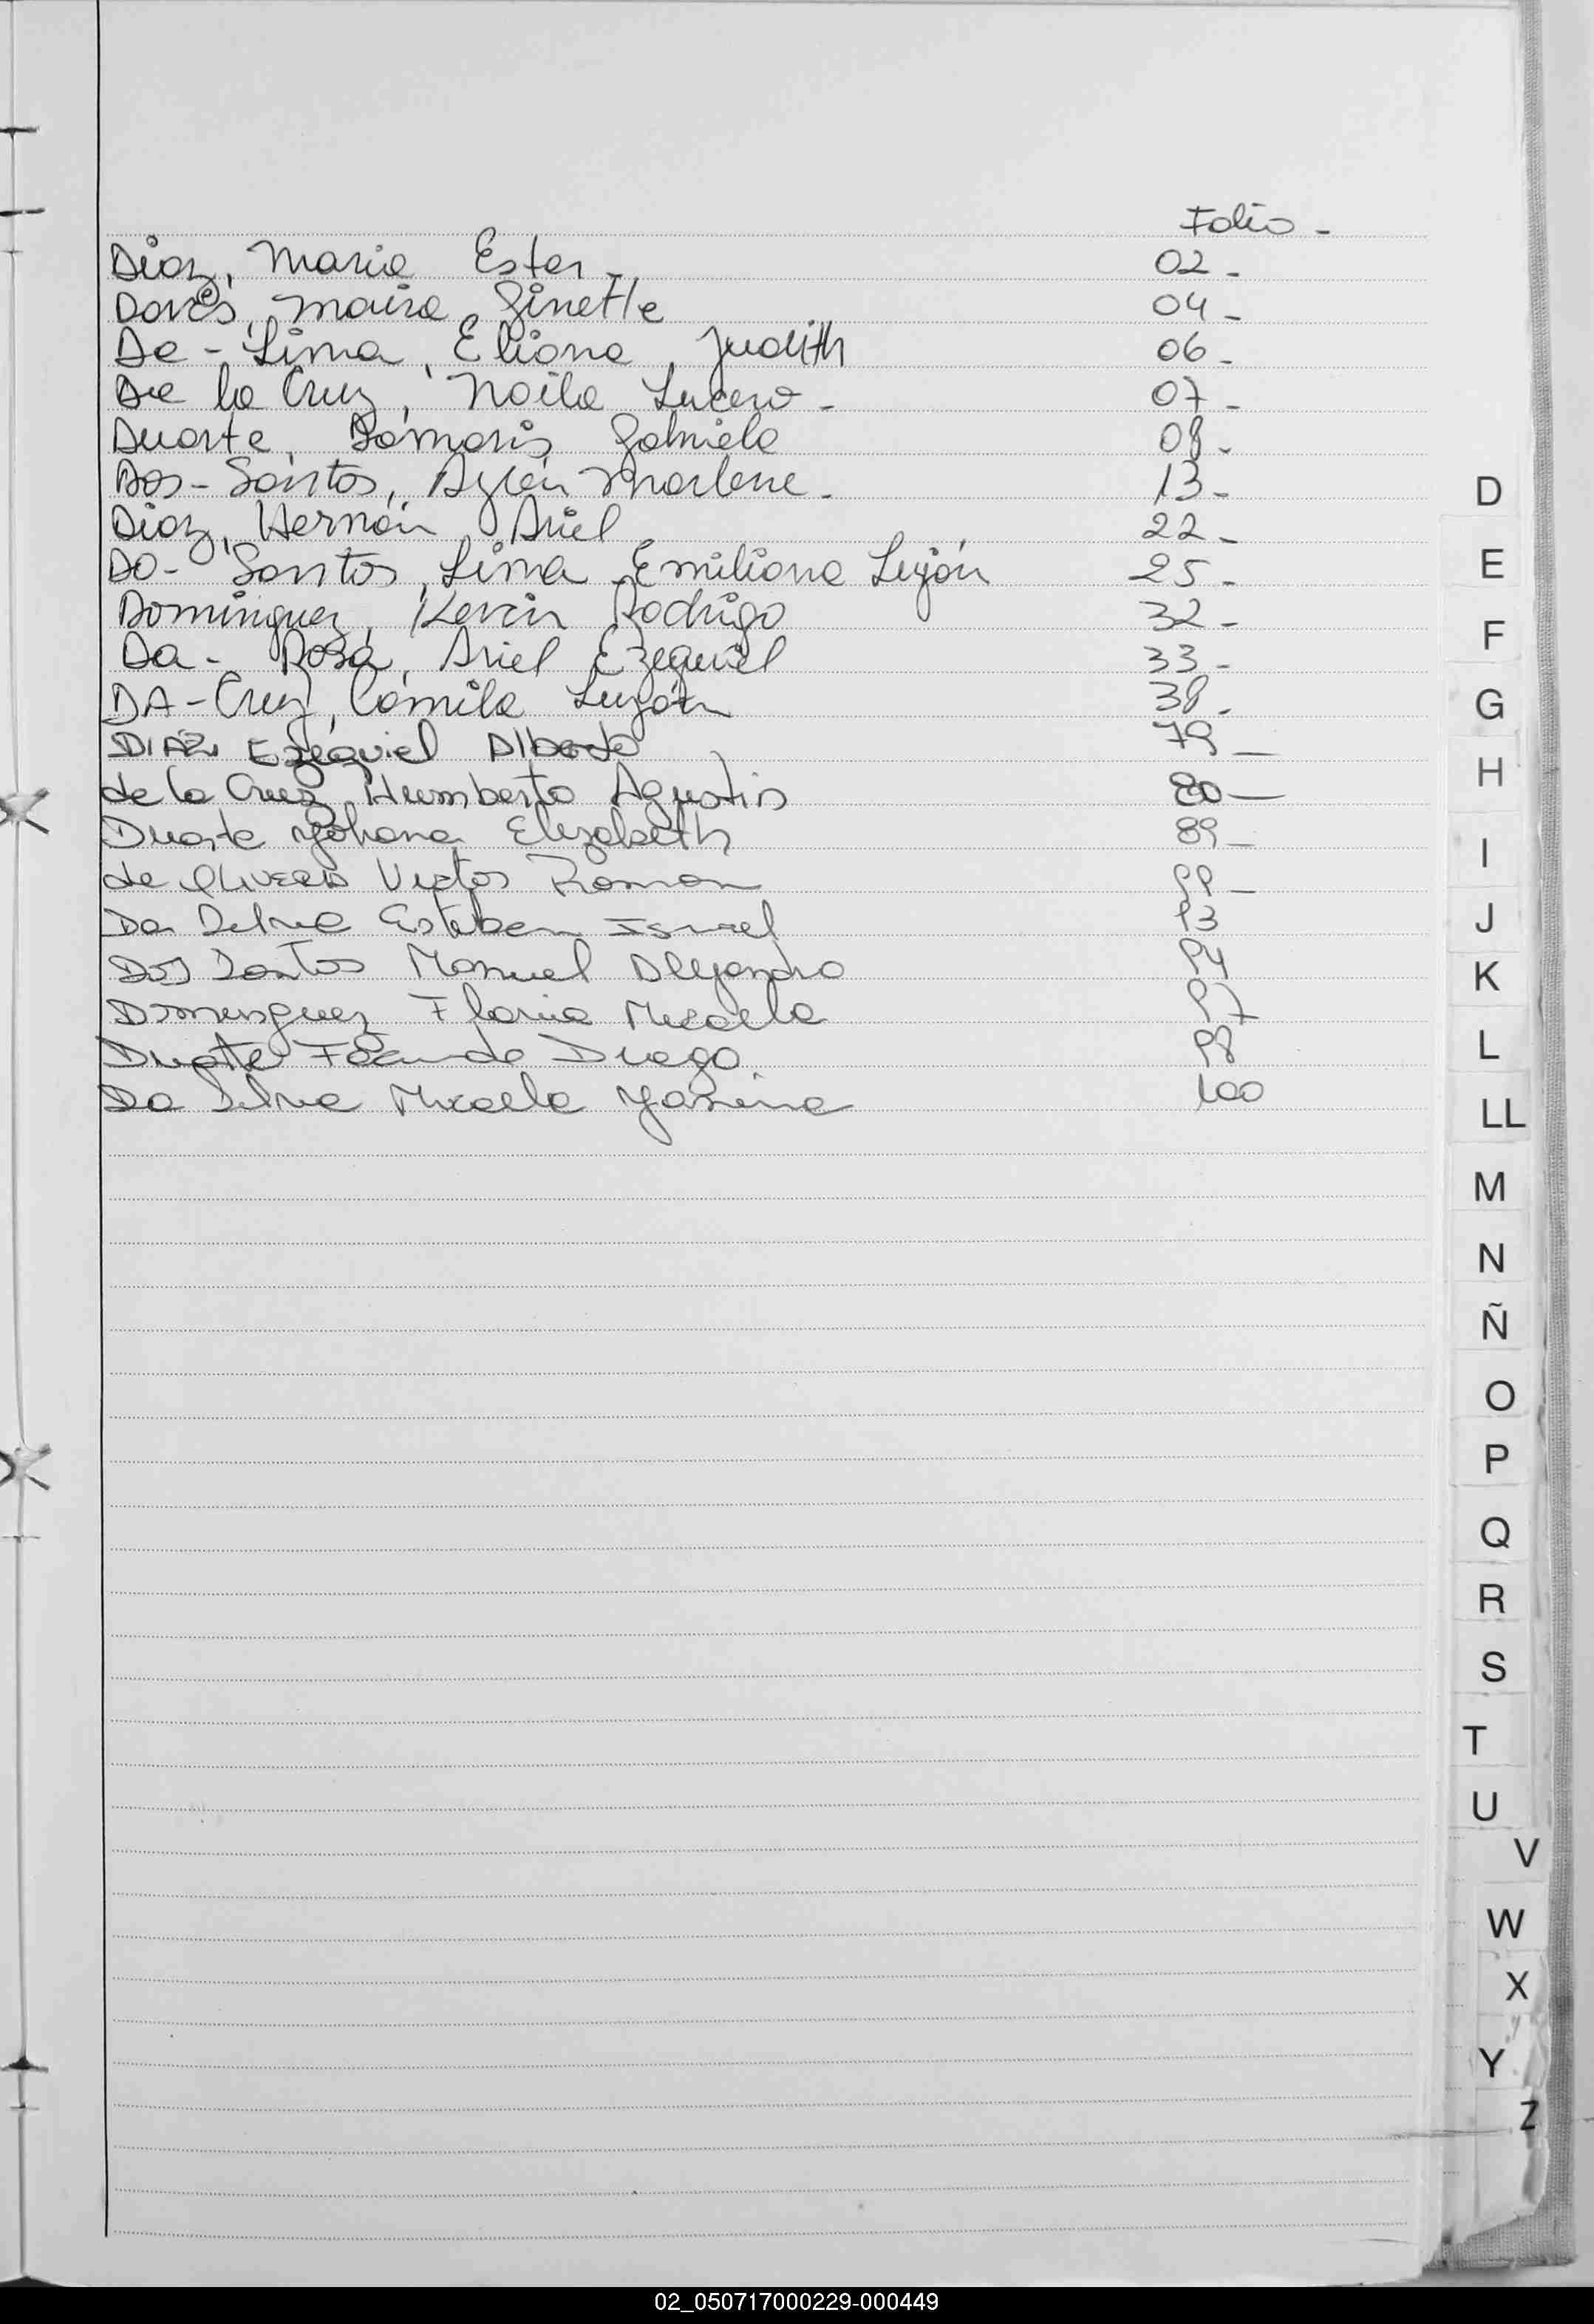 Folio -
Diaz, Maria Ester - 02 -
Dores, Maira Ginette 04 -
De - Lima, Eliana, Judith 06 -
De la Cruz, Naila Lucero - 07 -
Duarte, Dámaris Gabriela 08 -
Dos - Santos, Aylén Marlene - 13 -
Diaz, Hernán Ariel 22 -
Do - Santos, Lima Emiliana Luján 25 -
Dominguez, Kevin Rodrigo 32 -
Da - Rosa, Ariel Ezequiel 33 -
DA - Cruz, Camila Luján 38 -
DIAZ, Ezequiel Alberto 79 -
de la Cruz Humberto Agustin 80 -
Duarte Yohana Elizabeth 89 -
de Olivera Victor Roman
Da Silva Esteban Israel 93
Dos Santos Manuel Alejandro 94
Dominguez Flavia Micaela 97
Duarte Facundo Diego 98
Da Silva Micaela Yanina 100
D
E
F
G
H
I
J
K
L
LL
M
N
Ñ
O
P
Q
R
S
T
U
V
W
X
Y
Z
02_050717000229-000449